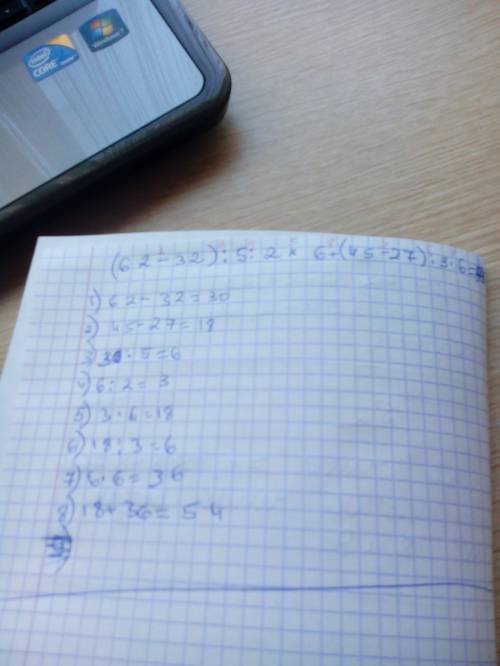 intel
CORE
Windows 7
(62-32):5:2*6+(45-27):3·6=
1) 62-32=30
2) 45-27=18
3) 30:5=6
4) 6:2=3
5) 3·6=18
6) 18:3=6
7) 6·6=36
8) 18+36=54